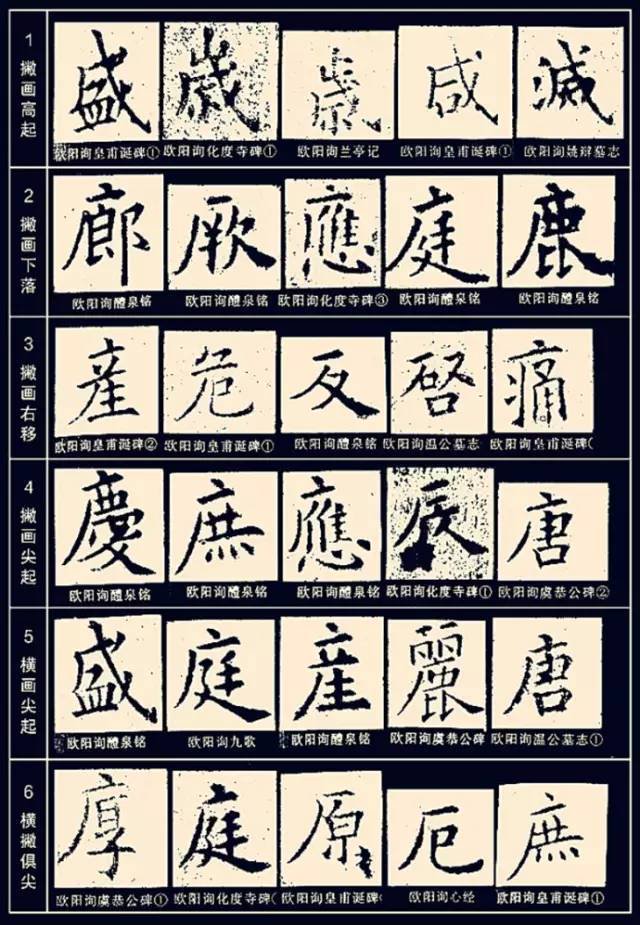 1 撇画高起
盛 歲 歲 咸 減
欧阳询皇甫诞碑① 欧阳询化度寺碑① 欧阳询兰亭记 欧阳询皇甫诞碑① 欧阳询姚辩墓志
2 撇画下落
廊 厥 應 庭 鹿
欧阳询醴泉铭 欧阳询醴泉铭 欧阳询化度寺碑③ 欧阳询醴泉铭 欧阳询醴泉铭
3 撇画右移
産 危 反 启 痛
欧阳询皇甫诞碑② 欧阳询皇甫诞碑① 欧阳询醴泉铭 欧阳询温公墓志 欧阳询皇甫诞碑(
4 撇画尖起
慶 庶 應 欧阳询醴泉铭 唐
欧阳询醴泉铭 欧阳询醴泉铭 欧阳询醴泉铭 欧阳询化度寺碑① 欧阳询虞恭公碑②
5 横画尖起
盛 庭 産 麗 唐
欧阳询醴泉铭 欧阳询九歌 欧阳询醴泉铭 欧阳询虞恭公碑 欧阳询温公墓志①
6 横撇俱尖
厚 庭 原 厄 庶
欧阳询虞恭公碑① 欧阳询化度寺碑( 欧阳询皇甫诞碑 欧阳询心经 欧阳询皇甫诞碑①